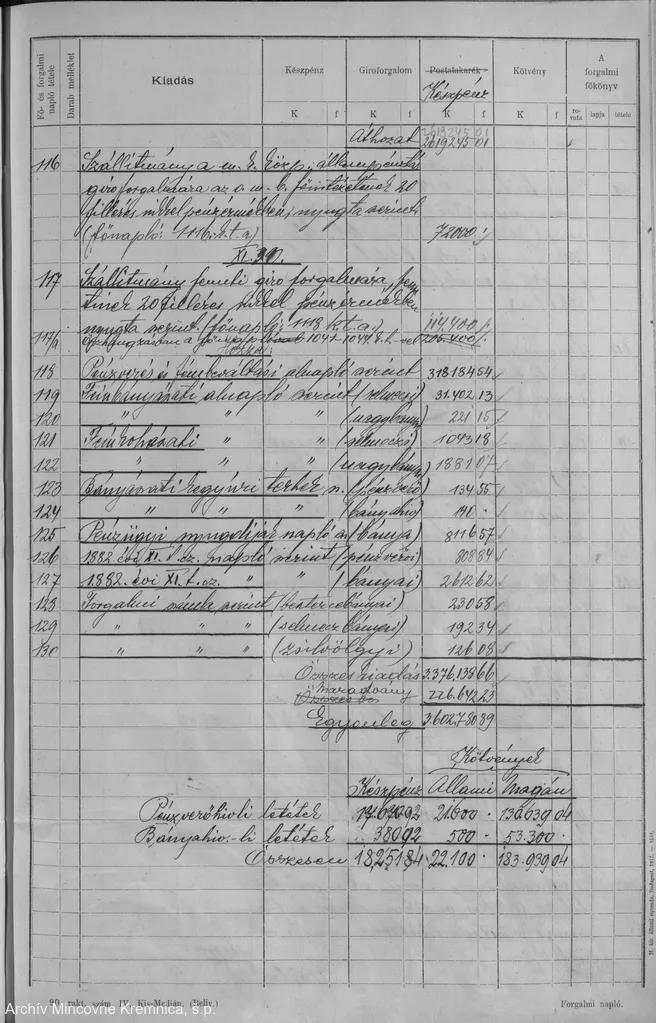 Fő- és forgalmi napló tétele
Darab melléklet
Kiadás
Készpénz
Giroforgalom
Postatakarék
Készpénz
Kötvény
A forgalmi főkönyv
K f K f K f K f rovata lapja tétele
Áthozat 2619245 01
2619245 01
116 Szállítmány a m. k. közp. állampénztár
giro forgalmára az o. m. b. főintézetnek 20
filléres nikkel pénzérmékben, nyugta szerint
(főnapló: 1116. k. t. a.) 72000
XI. 30.
117 Szállítmány fenti giro forgalmára,
20 filléres nikkel pénzérmékben
nyugta szerint (főnapló: 1118 k. t. a.) 114.400
117/a
118 Pénzverés és fémbeváltási alnapló szerint 318184 54
119 Fémbányászati alnapló szerint (selmeci) 31.402 13
120 " " " (nagybányai) 221 15
121 Fémkohászati " (selmeczi) 1043 18
122 " " (nagybányai) 188 07
123 Bányászati kegyúri terhek n. (pénzverő) 134 55
124 " " " (bányahiv) 140
125 Pénzügyi nyugdíjak napló a. (bánya) 811 657
126 1882. évi XI. t. cz. napló szerint (pénzverői) 808 84
127 1882. évi XI. t. cz. " " (bányai) 2612 62
128 Forgalmi számla szerint (beszterczebányai) 230 58
129 " " " (selmeczbányai) 192 34
130 " " " (zsilvölgyi) 126 08
Összes kiadás 3.376.138 66
Maradvány 226.642 23
Egyenleg 3.602.780 89
Kötvények
Készpénz Állami Magán
Pénzverőhivli letétek 21600 130639 04
Bányahiv.-li letétek 380 92 500 53.300
Összesen 18.251 84 22.100 183.939 04
90. rakt. szám IV. Kis-Medián. (Beliv.)
Forgalmi napló.
M. kir. állami nyomda. Budapest, 1917.
Archív Mincovne Kremnica, š.p.